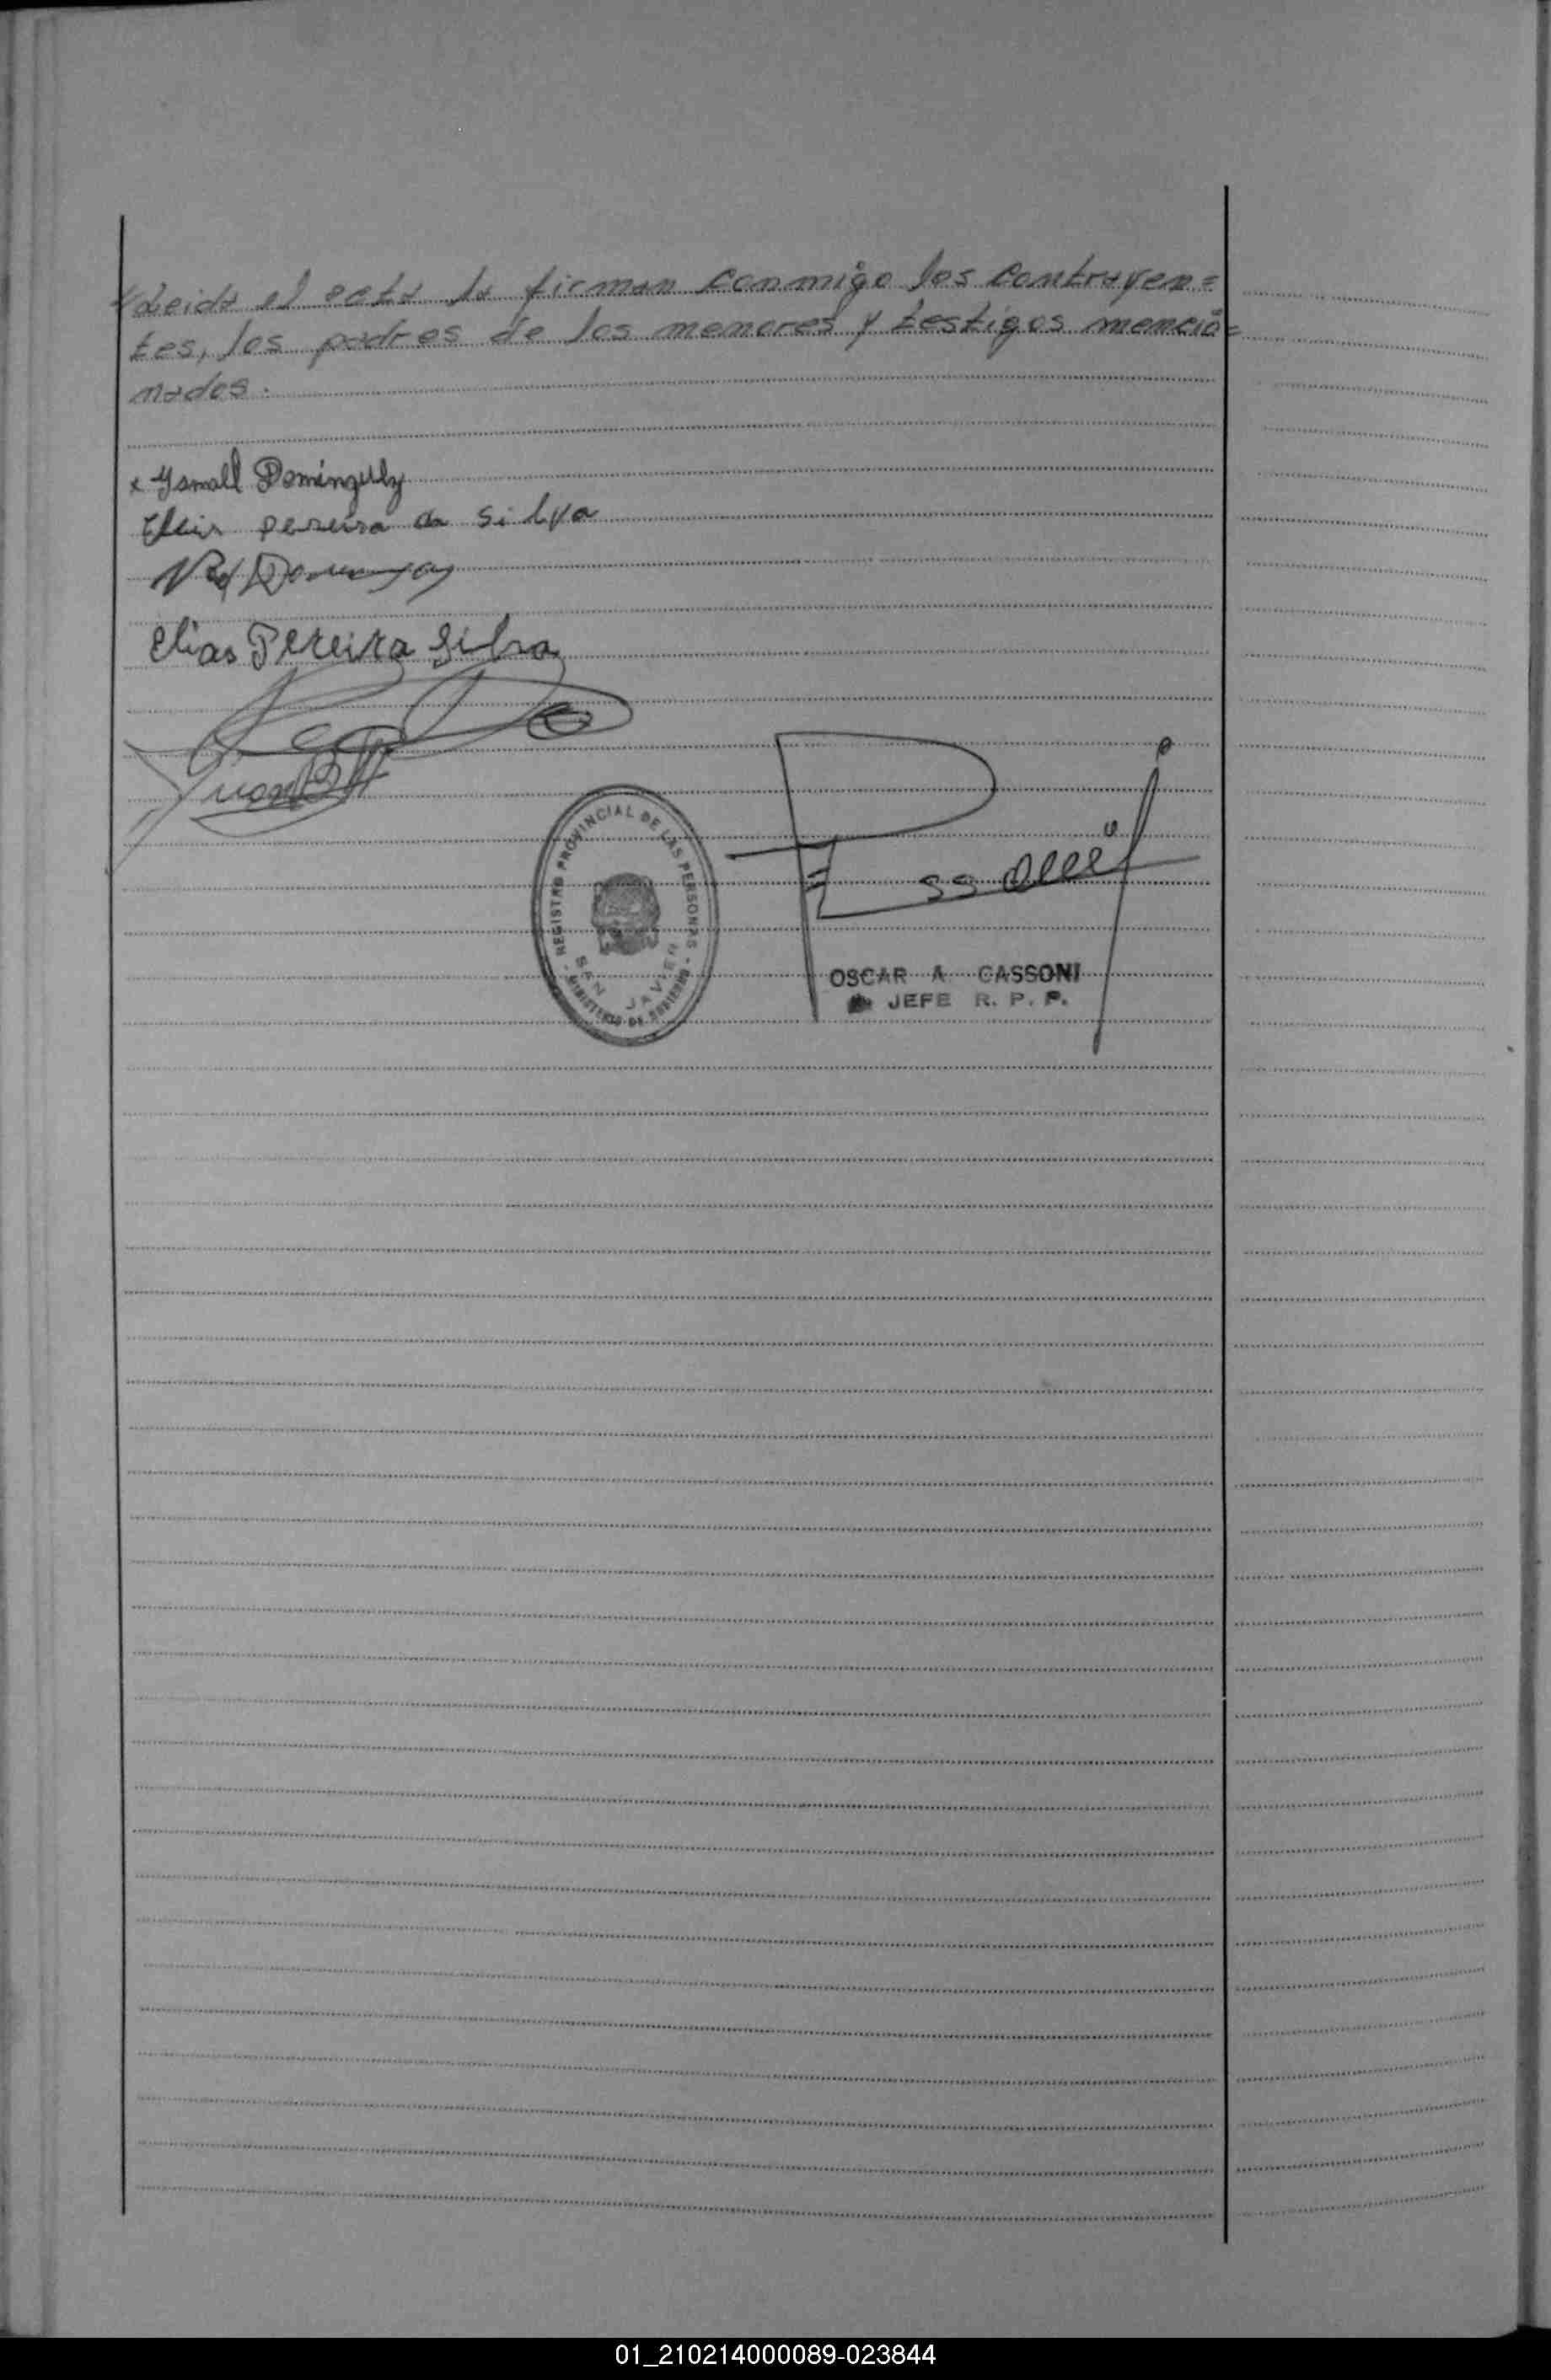 Leida el acta la firman conmigo los contrayen=
tes, los padres de los menores y testigos mencio=
nados.
x Ysmall Dominguez
pereira da silva
Elias Pereira Silva
Juan
REGISTRO PROVINCIAL DE LAS PERSONAS
SAN JAVIER
MINISTERIO DE GOBIERNO
OSCAR A CASSONI
JEFE R. P. P.
01_210214000089-023844